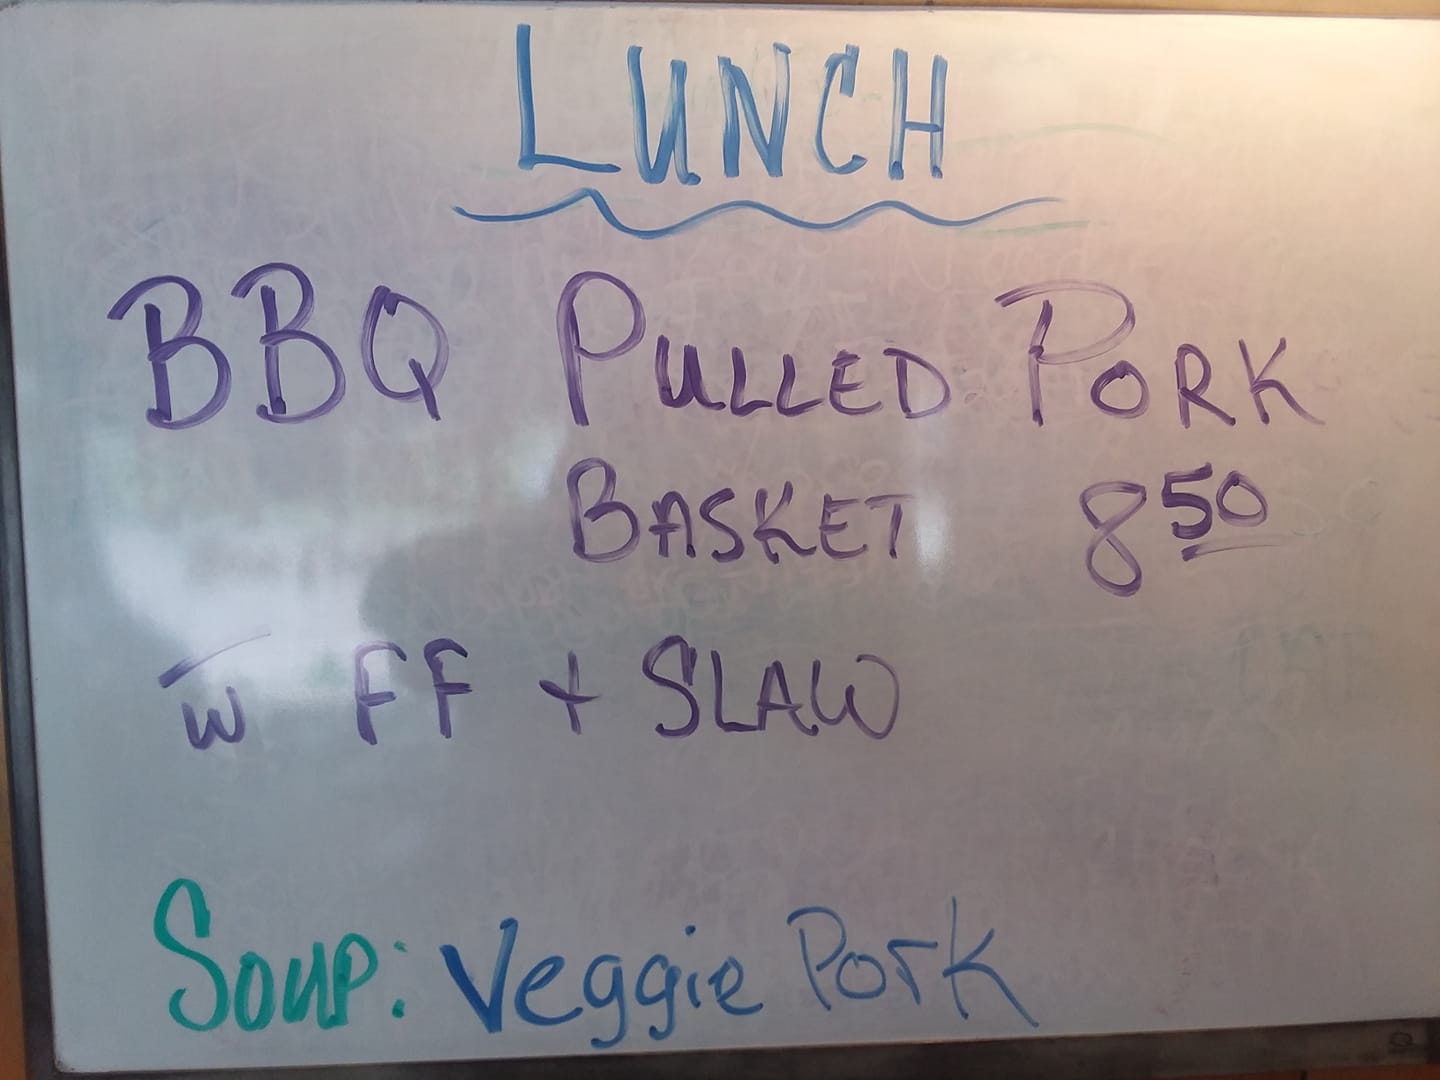 LUNCH
BBQ PULLED PORK
BASKET 8 50
w FF + SLAW
SOUP: Veggie Pork